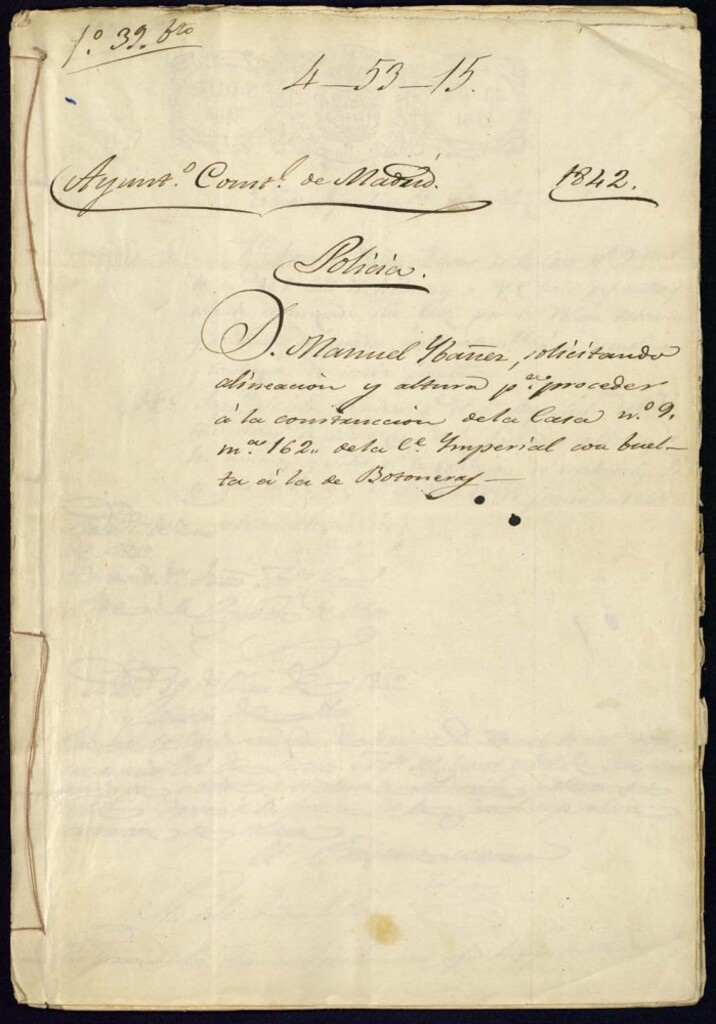 1.º 39. bro
4-53-15.
Ayunt.º Const.l de Madrid. 1842.
Policia.
D. Manuel Ybañez, solicitando
alineacion y altura p.ª proceder
á la construccion dela Casa n.º 9.
m.na 162,, dela C.e Ymperial con buel-
ta á la de Botoneras-